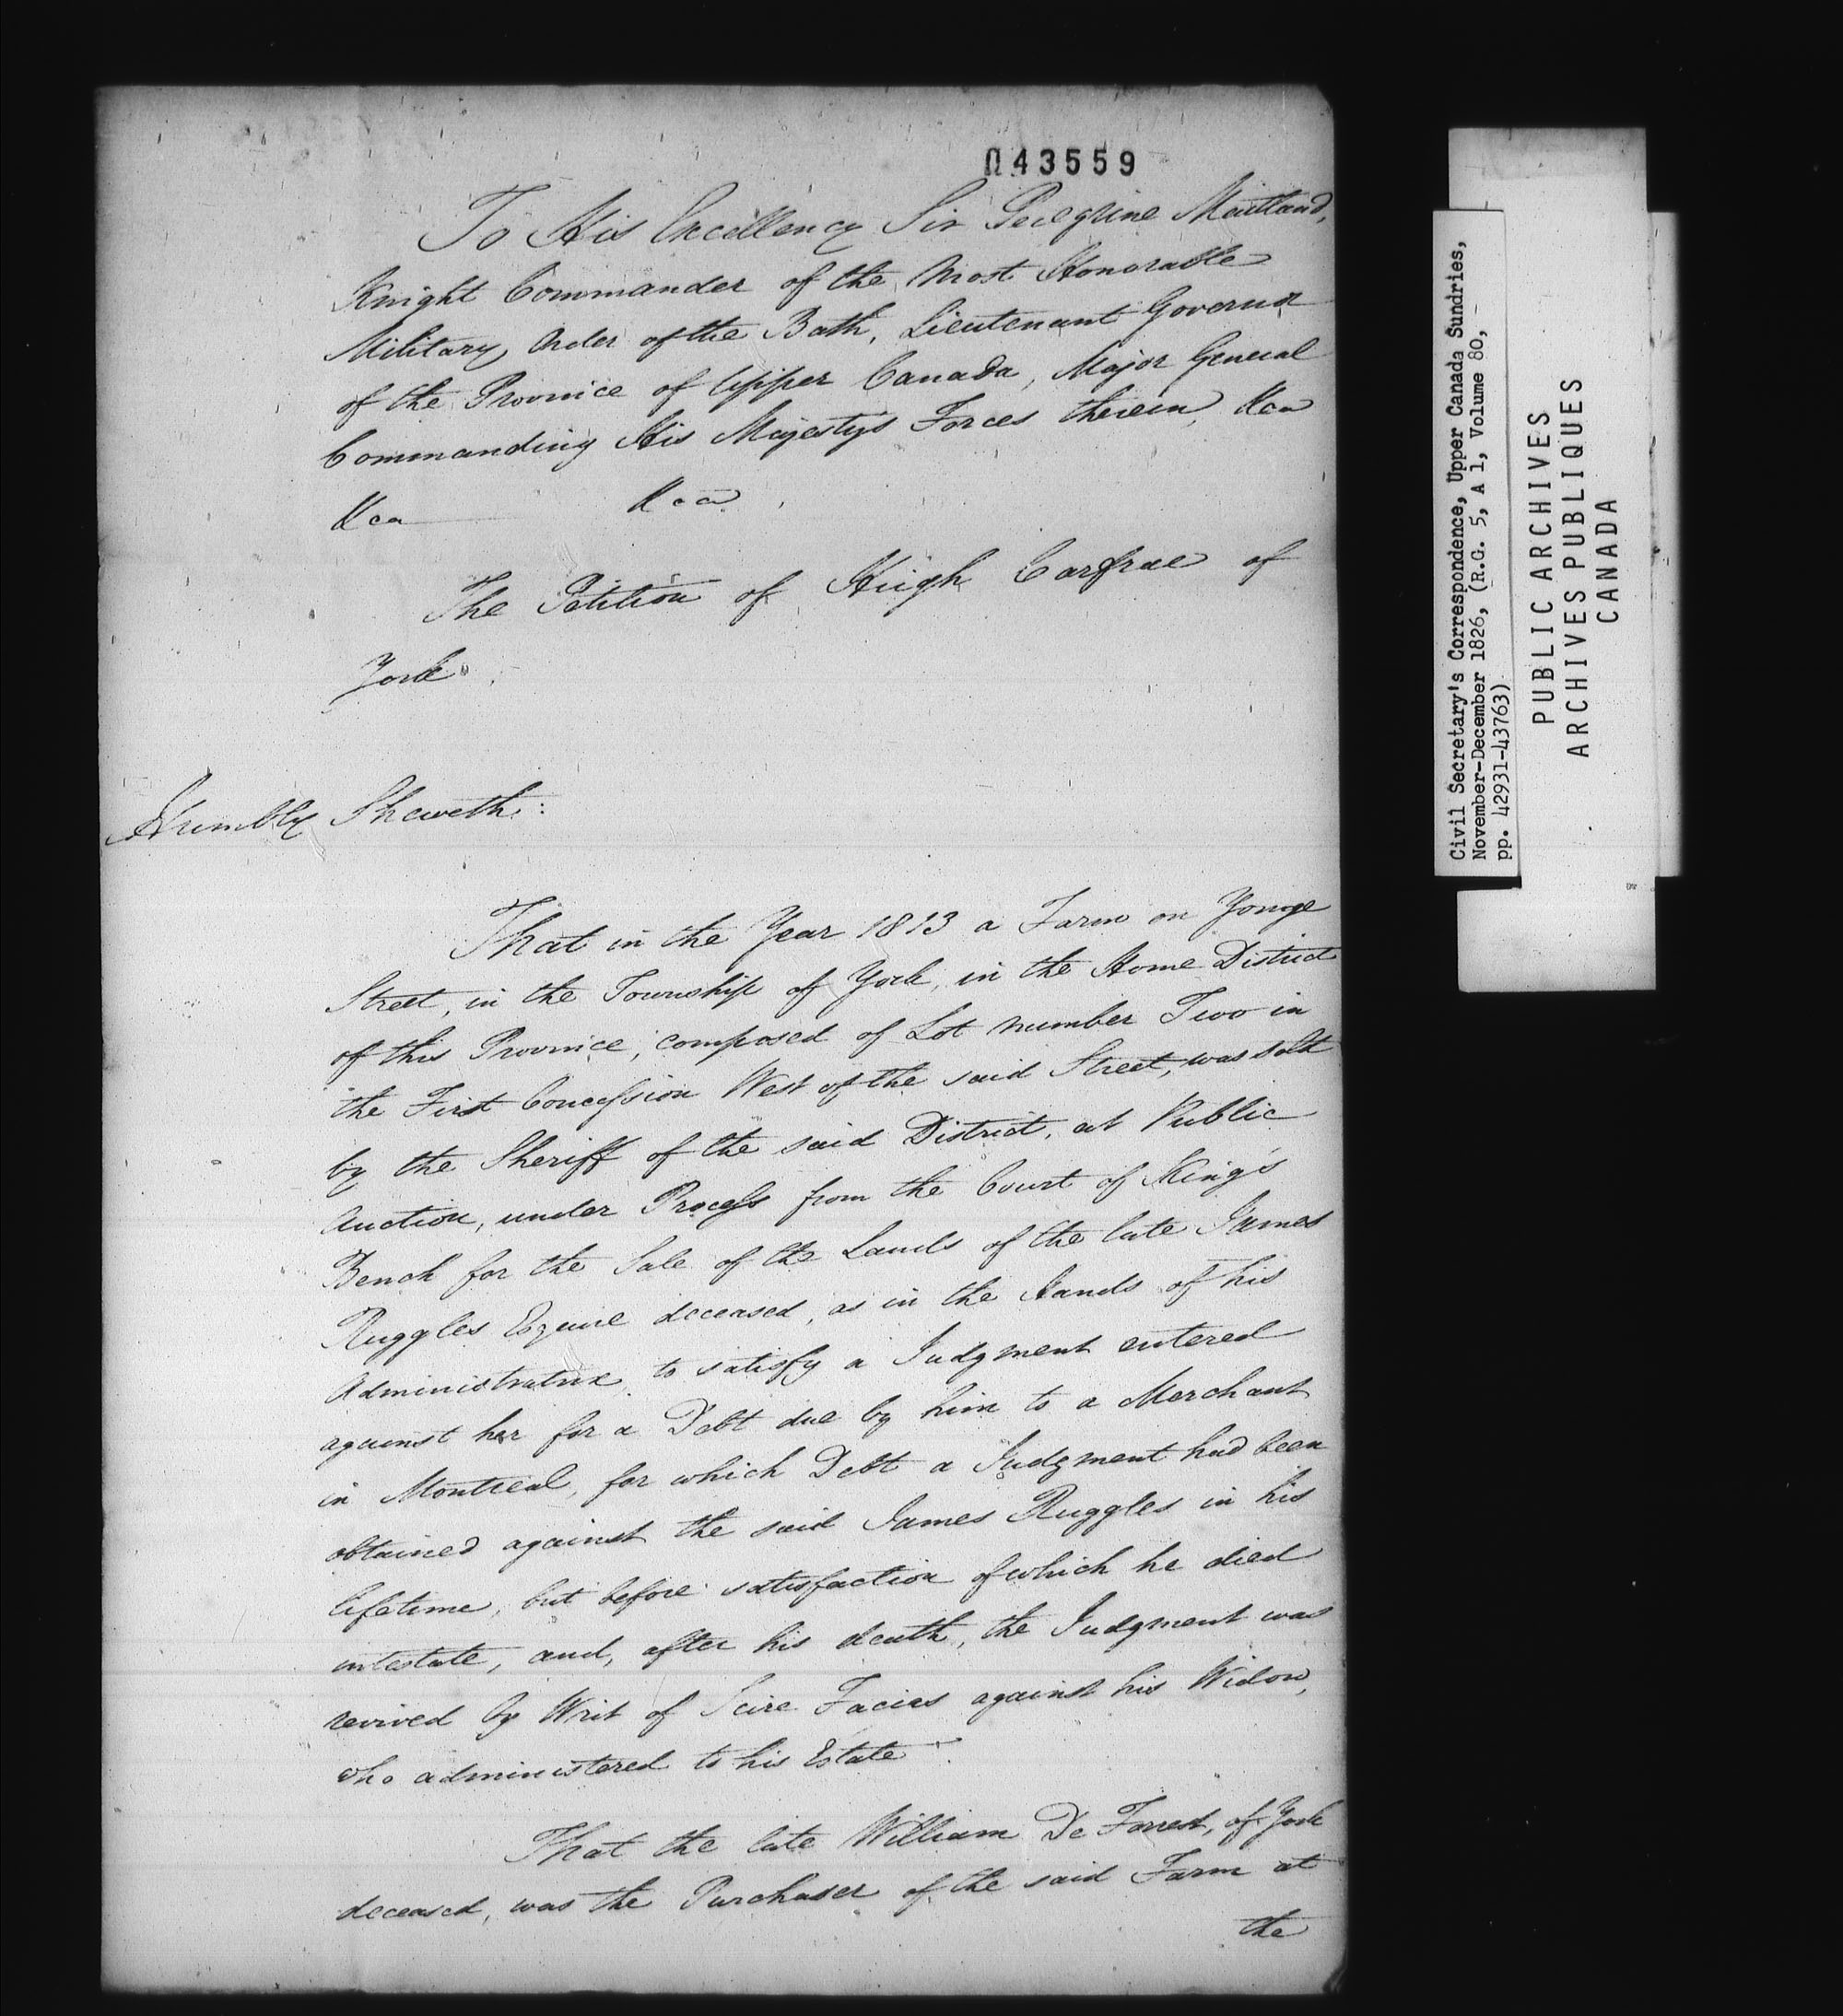 043559
To His Excellency Sir Peregrine Maitland,
Knight Commander of the Most Honorable
Military Order of the Bath, Lieutenant Governor
of the Province of Upper Canada, Major General
Commanding His Majestys Forces therein, &ca
&ca &ca.
The Petition of Hugh Carfrae of
York.
Humbly Sheweth:
That in the Year 1813 a Farm on Yonge
Street, in the Township of York, in the Home District
of this Province, composed of Lot number Two in
the First Concession West of the said Street, was sold
by the Sheriff of the said District, at Public
Auction, under Process from the Court of King's
Bench for the Sale of the Lands of the late James
Ruggles Esquire deceased, as in the Hands of his
Administratrix, to satisfy a Judgment entered
against her for a Debt due by him to a Merchant
in Montreal, for which Debt a Judgment had been
obtained against the said James Ruggles in his
lifetime, but before satisfaction of which he died
intestate, and, after his death, the Judgment was
revived by Writ of Scire Facias against his Widow,
who administered to his Estate.
That the late William De Forest, of York
deceased, was the Purchaser of the said Farm at
the
Civil Secretary's Correspondence, Upper Canada Sundries,
November-December 1826, (R.G. 5, A 1, Volume 80,
pp. 42931-43763)
PUBLIC ARCHIVES
ARCHIVES PUBLIQUES
CANADA